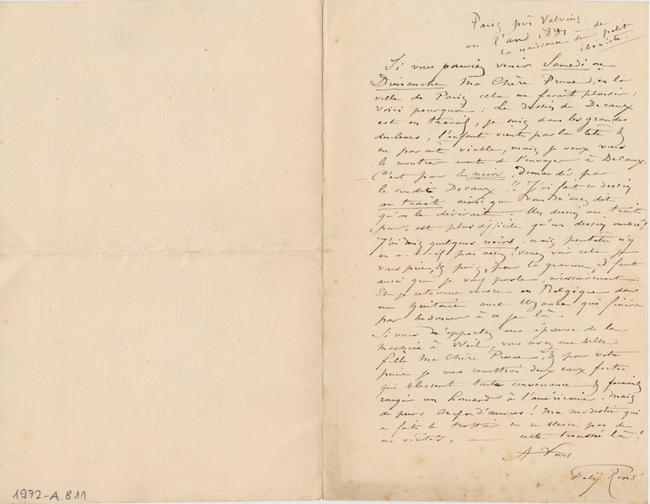 Paris près Valvins
en l'an 1891 de
la naissance du petit
Si vous pouviez venir Samedi ou
Dimanche Ma Chère Prune, en la
ville de Paris cela me ferait plaisir :
Voici pourquoi : Le dessin de Decaux
est en travail, je suis dans les grandes
douleurs, l'enfant vient par la tête &
me paraît viable, mais je veux vous
le montrer avant de l'envoyer à Decaux.
C'est pas les noirs demandés par
le susdit Decaux !! J'ai fait ce dessin
au trait ainsi que vous m'avez dit
qu'on le désirait. Un dessin au trait
pur, est plus difficile qu'un dessin ombré!
J'ai mis quelques noirs, mais peut-être n'y
en a-t-il pas assez! venez voir cela je
vous prie, & puis, pour la gravure, il faut
aussi que je vous parle, nécessairement.
Et je retourne encore en Belgique dans
une huitaine avec Uzanne qui finira
par
Si vous m'apportez une épreuve de la
machine à Weil, vous serez une belle
fille Ma Chère Prune, & pour votre
peine je vous remettrai deux eaux fortes
qui blessent toute convenance & feraient
rougir un homard à l'américaine. Mais
de purs chefs-d'œuvres! Ma modestie qui
a fait le ne se blesse pas de
ces vérités, cette là !
A Vous
Fély Rops
1972-A.811